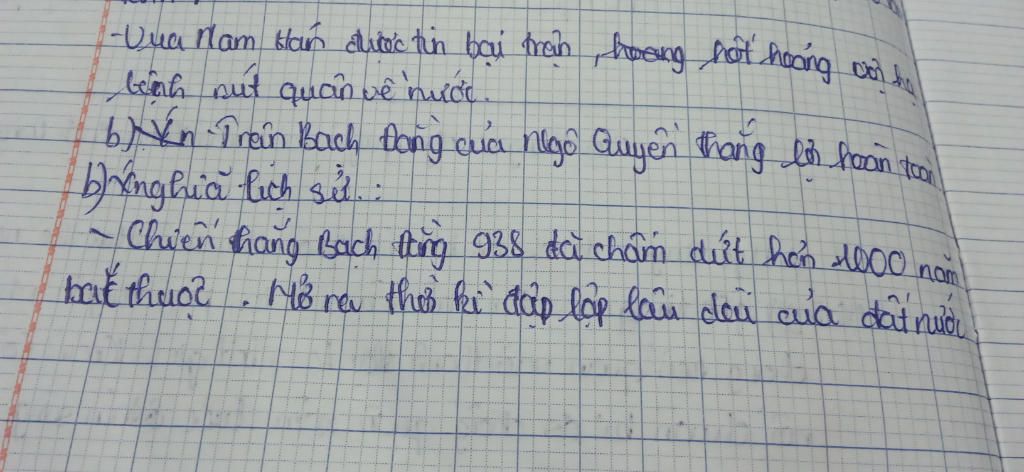 -Vua Nam Hán được tin bại trận, hoang hốt hoảng vội hạ
lệnh rút quân về nước.
b) Trận Bạch Đằng của Ngô Quyền thắng lợi hoàn toàn
b) Ý nghĩa lịch sử.:
- Chiến thắng Bạch Đằng 938 đã chấm dứt hơn 1000 năm
bắt thuộc. Mở ra thời kì đập lập lâu dài của đất nước.